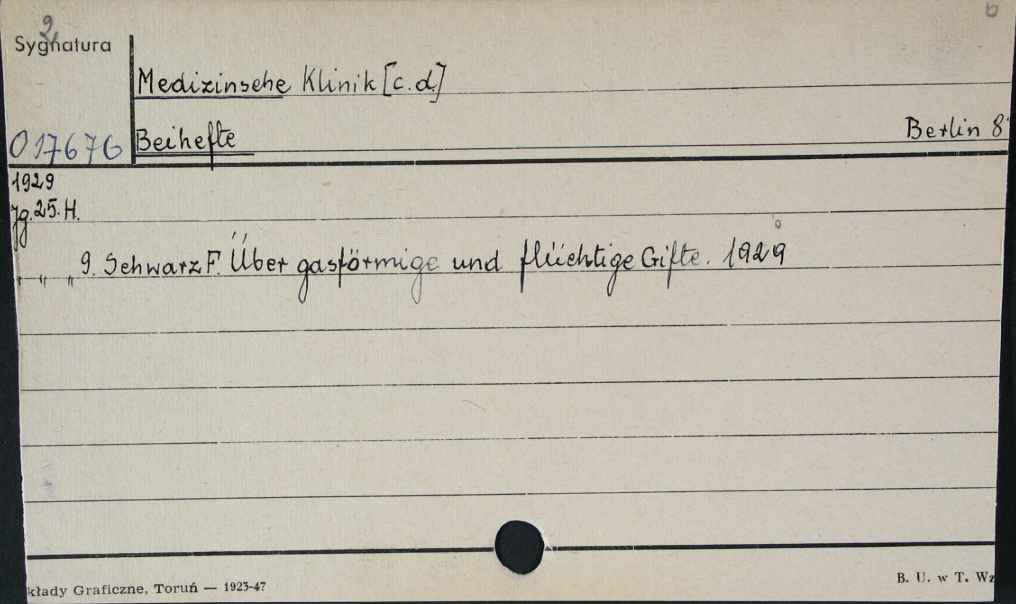 2
Sygnatura
Medizinsche Klinik [c.d.]
017676 Beihefte Berlin 8°
1929
Jg. 25. H.
" " " 9. Schwarz F. Über gasförmige und flüchtige Gifte. 1929
kłady Graficzne, Toruń — 1923-47
B. U. w T. Wz